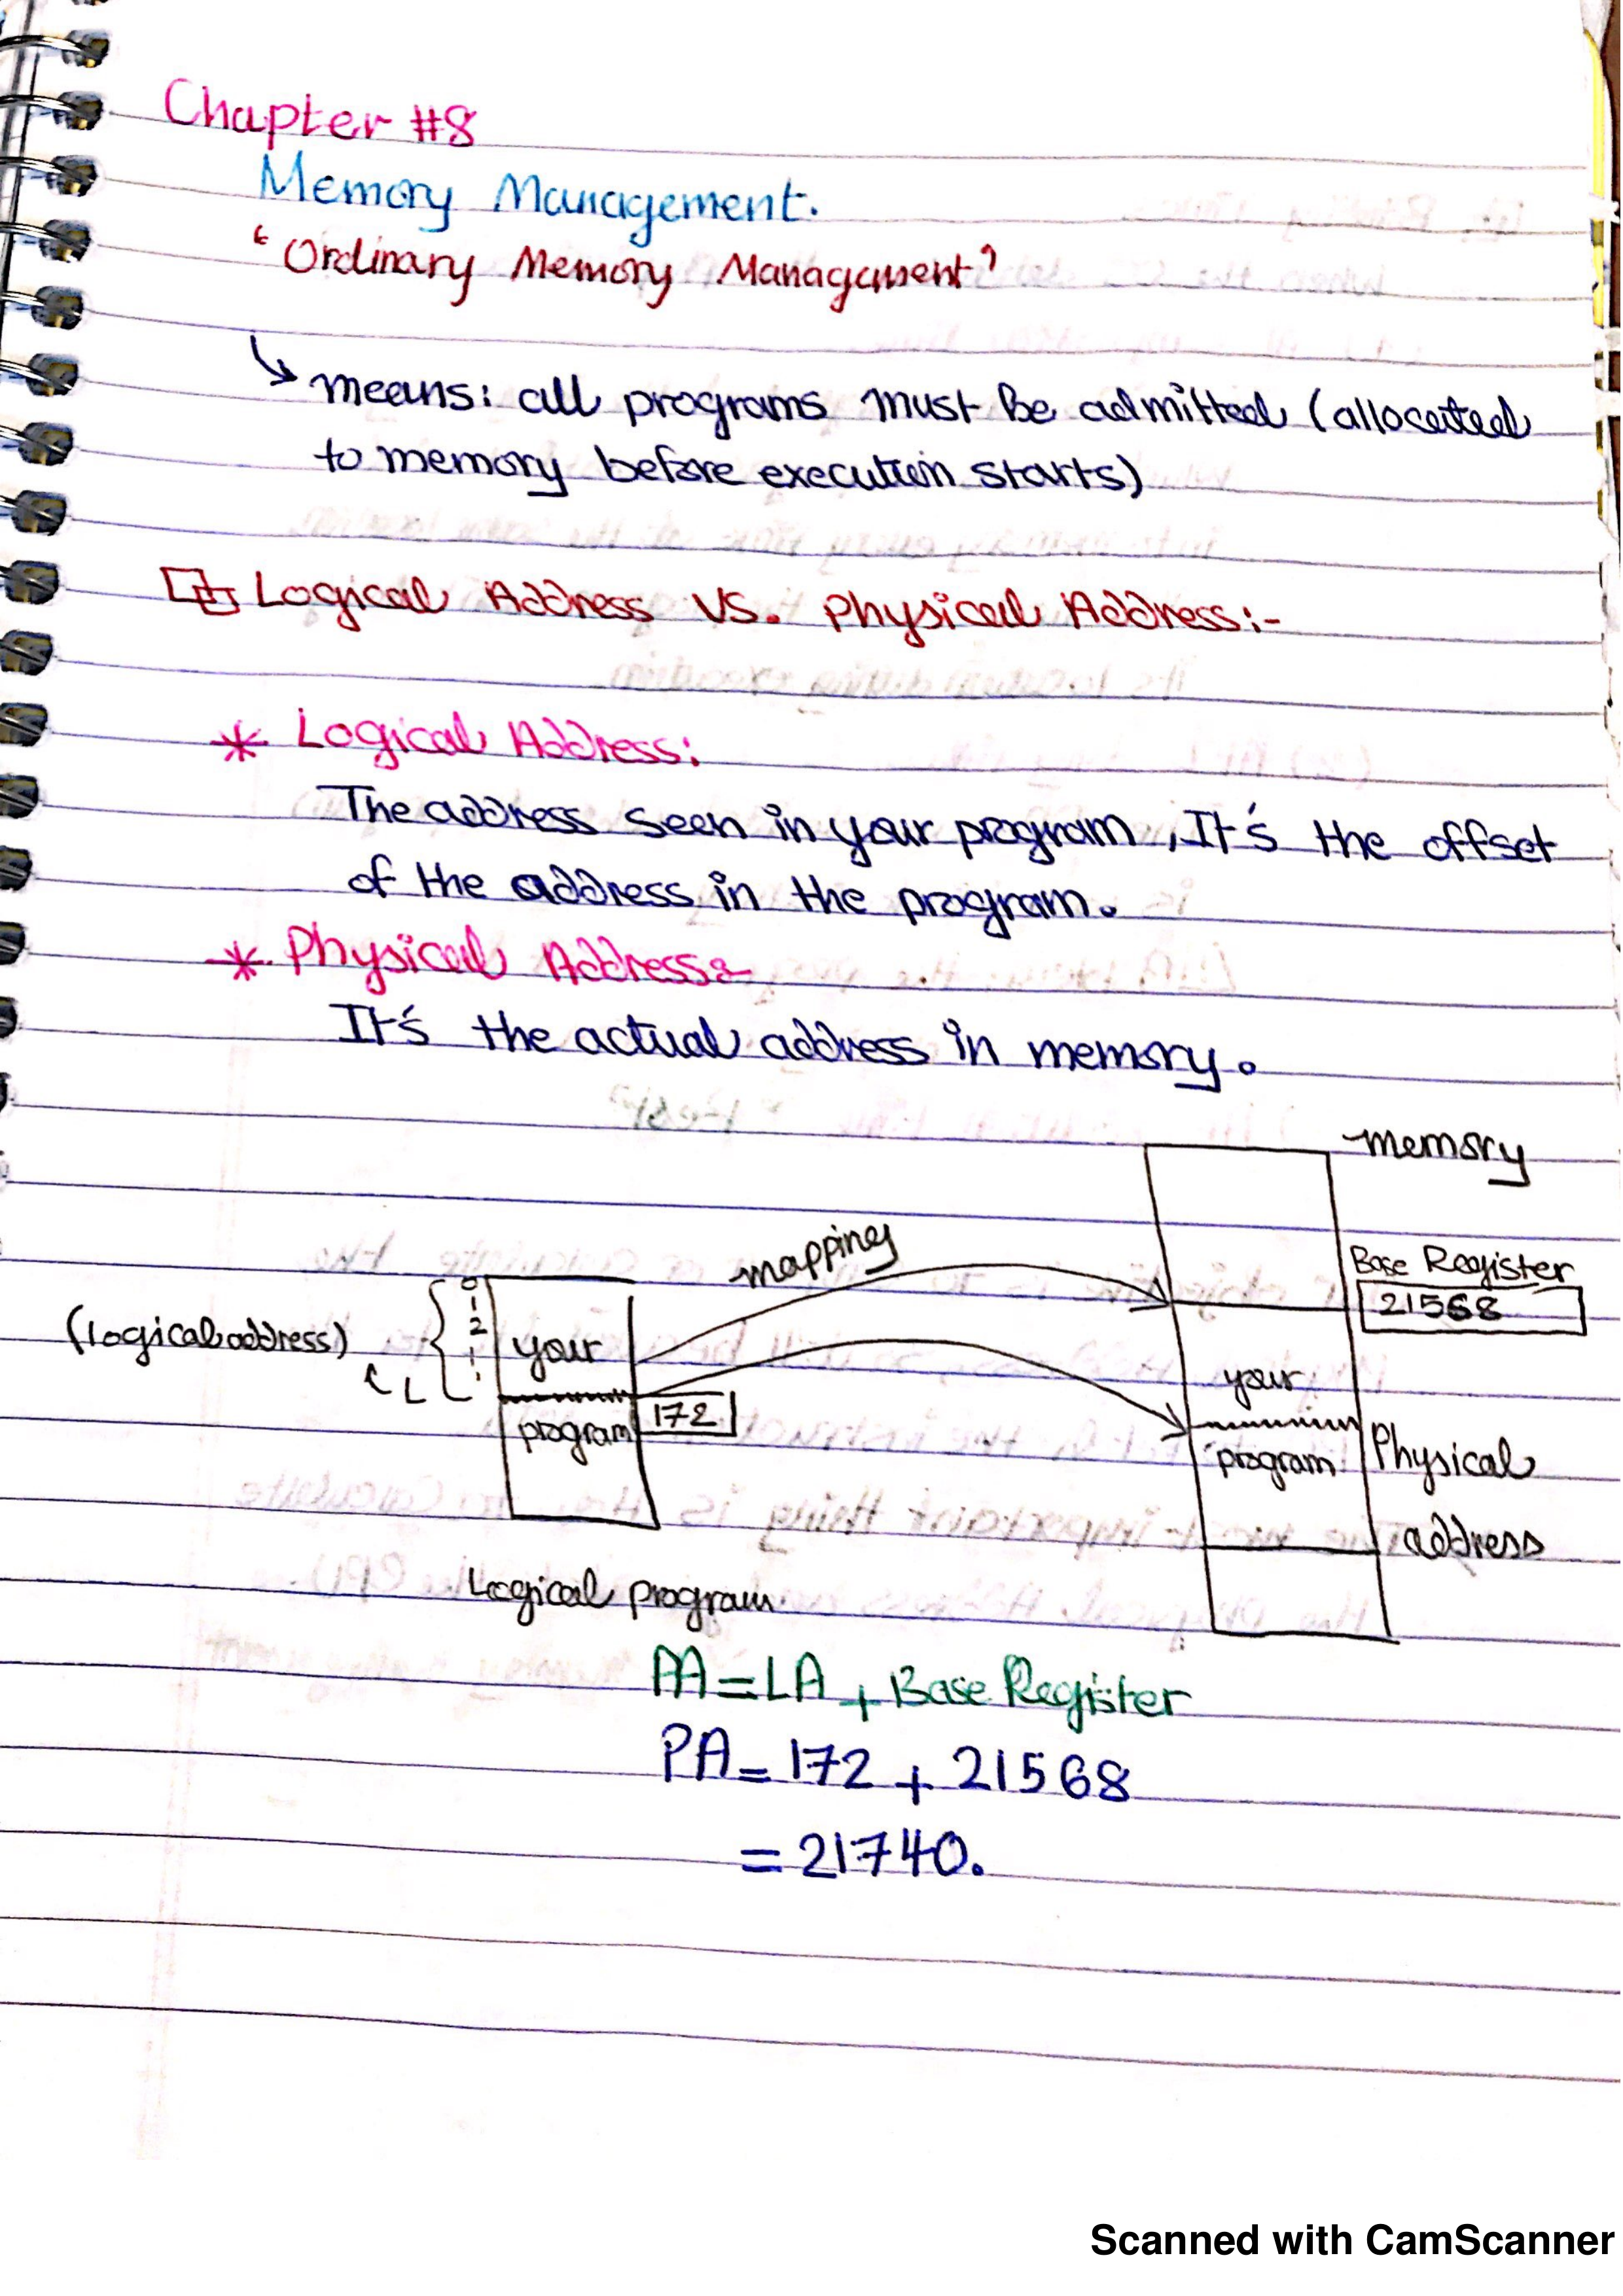 Chapter #8
Memory Management.
"Ordinary Memory Management"
means: all programs must be admitted (allocated
to memory before execution starts)
Logical Address VS. Physical Address:-
* Logical Address:
The address seen in your program, It's the offset
of the address in the program.
* Physical Address:-
It's the actual address in memory.
memory
mapping
Base Register
21568
(logical address)
0
1
2
your
program
172
your
program
Physical
address
Logical program
PA = LA + Base Register
PA = 172 + 21568
= 21740.
Scanned with CamScanner